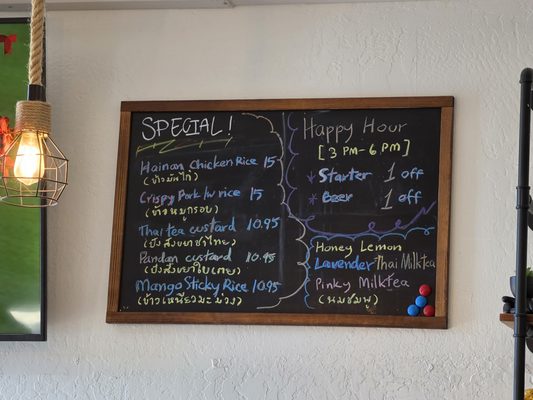 SPECIAL!
Hainan Chicken Rice 15
(ข้าวมันไก่)
Crispy Pork /w rice 15
(ข้าวหมูกรอบ)
Thai tea custard 10.95
(ปังสังขยาชาไทย)
Pandan custard 10.95
(ปังสังขยาใบเตย)
Mango Sticky Rice 10.95
(ข้าวเหนียวมะม่วง)
Happy Hour
[3 PM-6 PM]
* Starter 1 off
* Beer 1 off
Honey Lemon
Lavender Thai Milktea
Pinky Milktea
(นมชมพู)